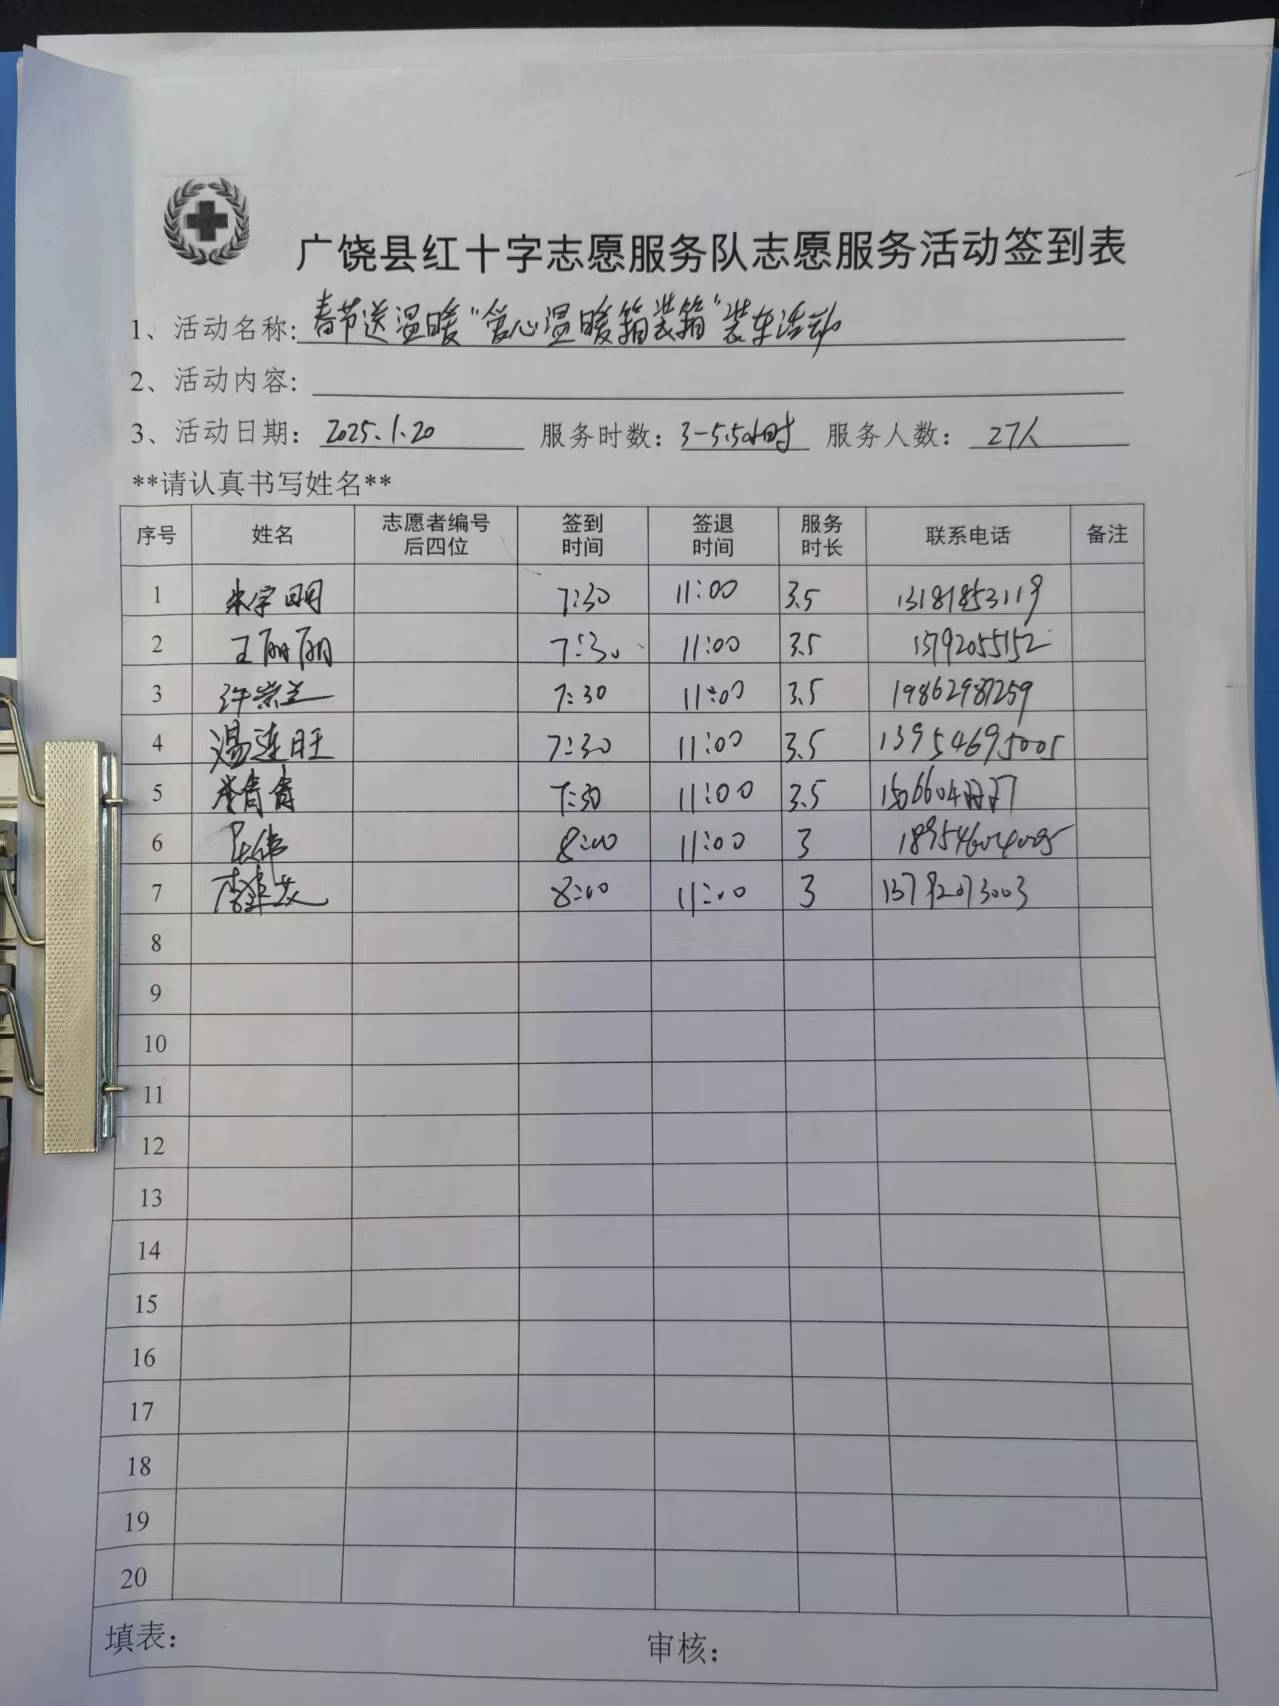 广饶县红十字志愿服务队志愿服务活动签到表
1、活动名称: 春节送温暖"爱心温暖箱装箱"装车活动
2、活动内容:
3、活动日期: 2025.1.20 服务时数: 3-5.5小时 服务人数: 27人
**请认真书写姓名**
序号 姓名 志愿者编号后四位 签到时间 签退时间 服务时长 联系电话 备注
1 宋宇明 7:30 11:00 3.5 13181853119
2 王丽丽 7:30 11:00 3.5 13792055152
3 许崇兰 7:30 11:00 3.5 19862987259
4 汤连旺 7:30 11:00 3.5 13954695005
5 李青青 7:30 11:00 3.5
6 8:00 11:00 3 18954604005
7 李建英 8:00 11:00 3 13792073003
8
9
10
11
12
13
14
15
16
17
18
19
20
填表: 审核: